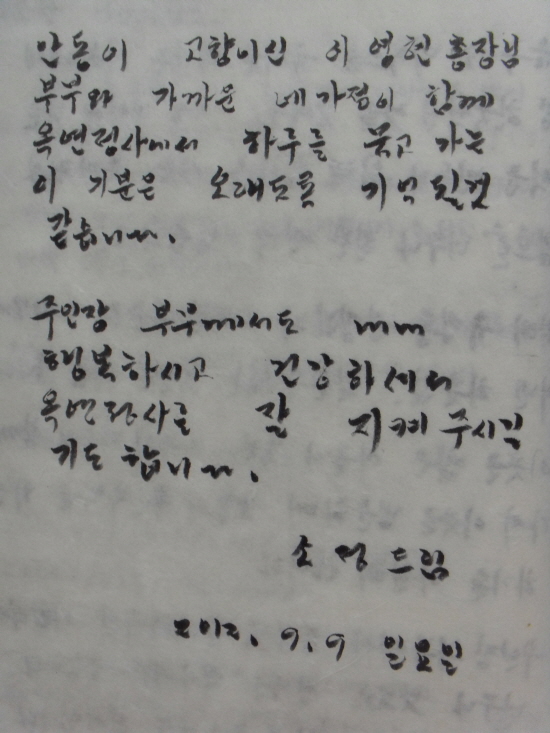 안동이 고향이신 이영현 총장님
부부와 가까운 네가정이 함께
옥연정사에서 하루를 묵고 가는
이 기분은 오래도록 기억 될것
같습니다.
주인장 부부께서도 내내
행복하시고 건강하셔서
옥연정사를 잘 지켜 주시길
기도 합니다.
소정 드림
2012. 9. 9 일요일